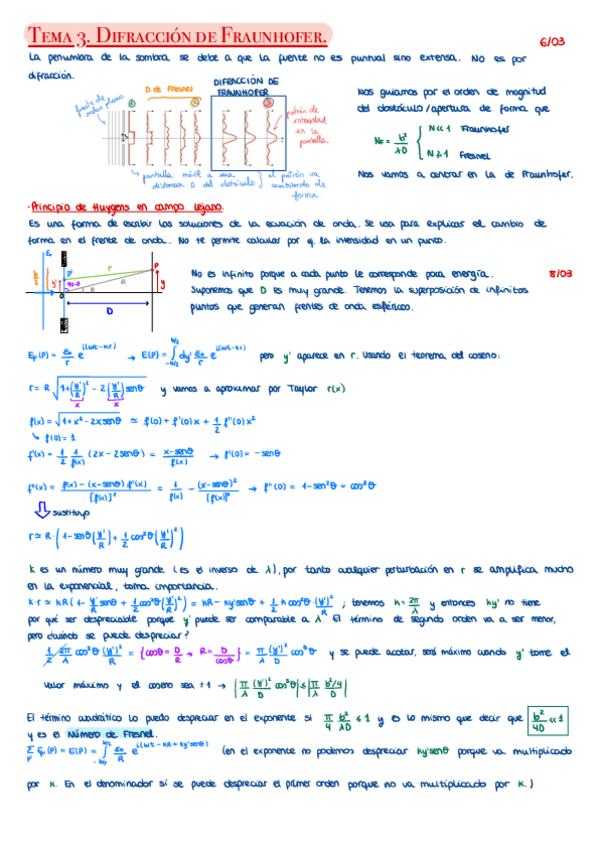 TEMA 3. DIFRACCIÓN DE FRAUNHOFER.
6/03
La penumbra de la sombra se debe a que la fuente no es puntual sino extensa. No es por
difracción.
fuente de ondas planas
D. de Fresnel
DIFRACCIÓN DE
FRAUNHOFER
① ② ③
patrón de
intensidad
en la
pantalla
pantalla móvil a una
distancia D del obstáculo
el patrón va
cambiando de
forma.
Nos guiamos por el orden de magnitud
del obstáculo/apertura de forma que
N_F = b²/λD { N≪1 Fraunhofer
N≥1 Fresnel
Nos vamos a centrar en la de Fraunhofer.
·Principio de Huygens en campo lejano.
Es una forma de escribir las soluciones de la ecuación de onda. Se usa para explicar el cambio de
forma en el frente de onda. No te permite calcular por ej. la intensidad en un punto.
P' r P
y' R y
D
8/03
No es infinito porque a cada punto le corresponde poca energía.
Suponemos que D es muy grande. Tenemos la superposición de infinitos
puntos que generan frentes de onda esféricos.
E_P'(P) = ε₀/r e^{i(ωt-kr)} → E(P) = ∫_{-b/2}^{b/2} dy' ε₀/r e^{i(ωt-kr)} pero y' aparece en r. Usando el teorema del coseno:
r = R √(1+(y'/R)² - 2(y'/R)senθ) y vamos a aproximar por Taylor r(x)
x x
f(x) = √(1+x²-2xsenθ) ≃ f(0) + f'(0)x + 1/2 f''(0)x²
↳ f(0) = 1
f'(x) = 1/2 1/f(x) (2x - 2senθ) = (x-senθ)/f(x) → f'(0) = -senθ
f''(x) = (f(x) - (x-senθ)f'(x))/[f(x)]² = 1/f(x) - (x-senθ)²/[f(x)]³ → f''(0) = 1-sen²θ = cos²θ
⇩ sustituyo
r ≃ R·(1 - senθ(y'/R) + 1/2 cos²θ(y'/R)²)
k es un número muy grande (es el inverso de λ), por tanto cualquier perturbación en r se amplifica mucho
en la exponencial, toma importancia.
k·r ≃ kR(1 - y'/R senθ + 1/2 cos²θ(y'/R)²) = kR - ky'senθ + 1/2 k cos²θ·(y')²/R ; tenemos k = 2π/λ y entonces ky' no tiene
por qué ser despreciable porque y' puede ser comparable a λ. El término de segundo orden va a ser menor,
pero cuándo se puede despreciar?
1/2 2π/λ cos²θ (y')²/R = {cosθ = D/R → R = D/cosθ} = π/λ (y')²/D cos³θ y se puede acotar, será máximo cuando y' tome el
valor máximo y el coseno sea ±1 → |π/λ (y')²/D cos³θ| ≤ |π/λ b²/4/D|
El término cuadrático lo puedo despreciar en el exponente si π/4 b²/λD ≪ 1 y es lo mismo que decir que b²/4D ≪ 1
y es el Número de Fresnel.
Σ_P' E_P'(P) = E(P) = ∫_{-b/2}^{b/2} ε₀/R e^{i(ωt-kR+ky'senθ)} (en el exponente no podemos despreciar ky'senθ porque va multiplicado
por k. En el denominador sí se puede despreciar el primer orden porque no va multiplicado por k.)